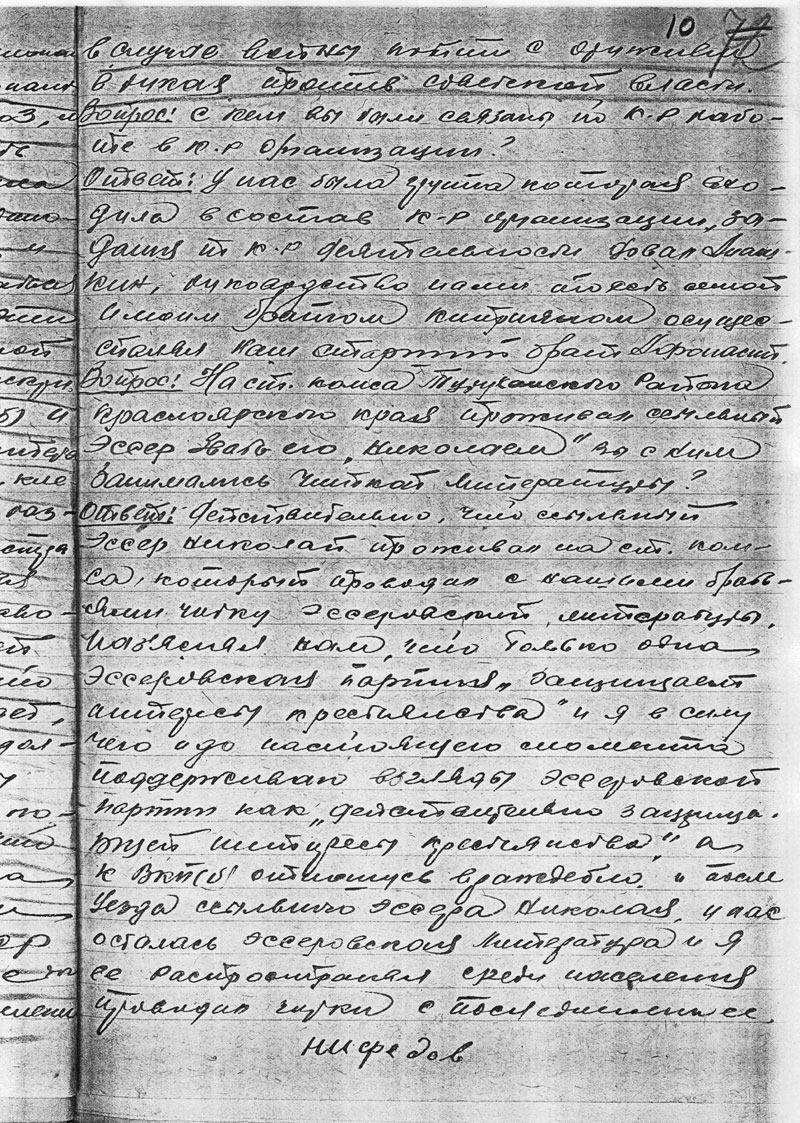 10
в случае войны пойти с оружием
в руках против советской власти.
Вопрос: С кем вы были связаны по к-р рабо-
те в к.р организации?
Ответ: У нас была группа которая вхо-
дила в состав к-р организации, за-
дания по к-р деятельности довал
руководство нами тоесть мной
и моим братом осущес-
ствлял наш старший брат Афонасий.
Вопрос: На ст. комса Туруханского Района
Красноярского края проживал ссыльный
Эссер звать его „Николаем" вы с ним
занимались читкой литературы?
Ответ: Действительно, что ссыльный
Эссер Николай проживал на ст. ком-
са, который проводил с нашими брать-
ями читку эссеровской литературы,
раз'яснял нам, что только одна
Эссеровская партия „защищает
интересы крестьянства" и я в силу
чего и до настоящего момента
поддерживаю взгляды эссеровской
партии как „действительно защища-
ющей интересы крестьянства" а
к ВКП(б) отношусь враждебно, и после
уезда ссыльного эссера Николая, у нас
осталась эссеровская литература и я
ее распространял среди населения
проводил читки с последними ее